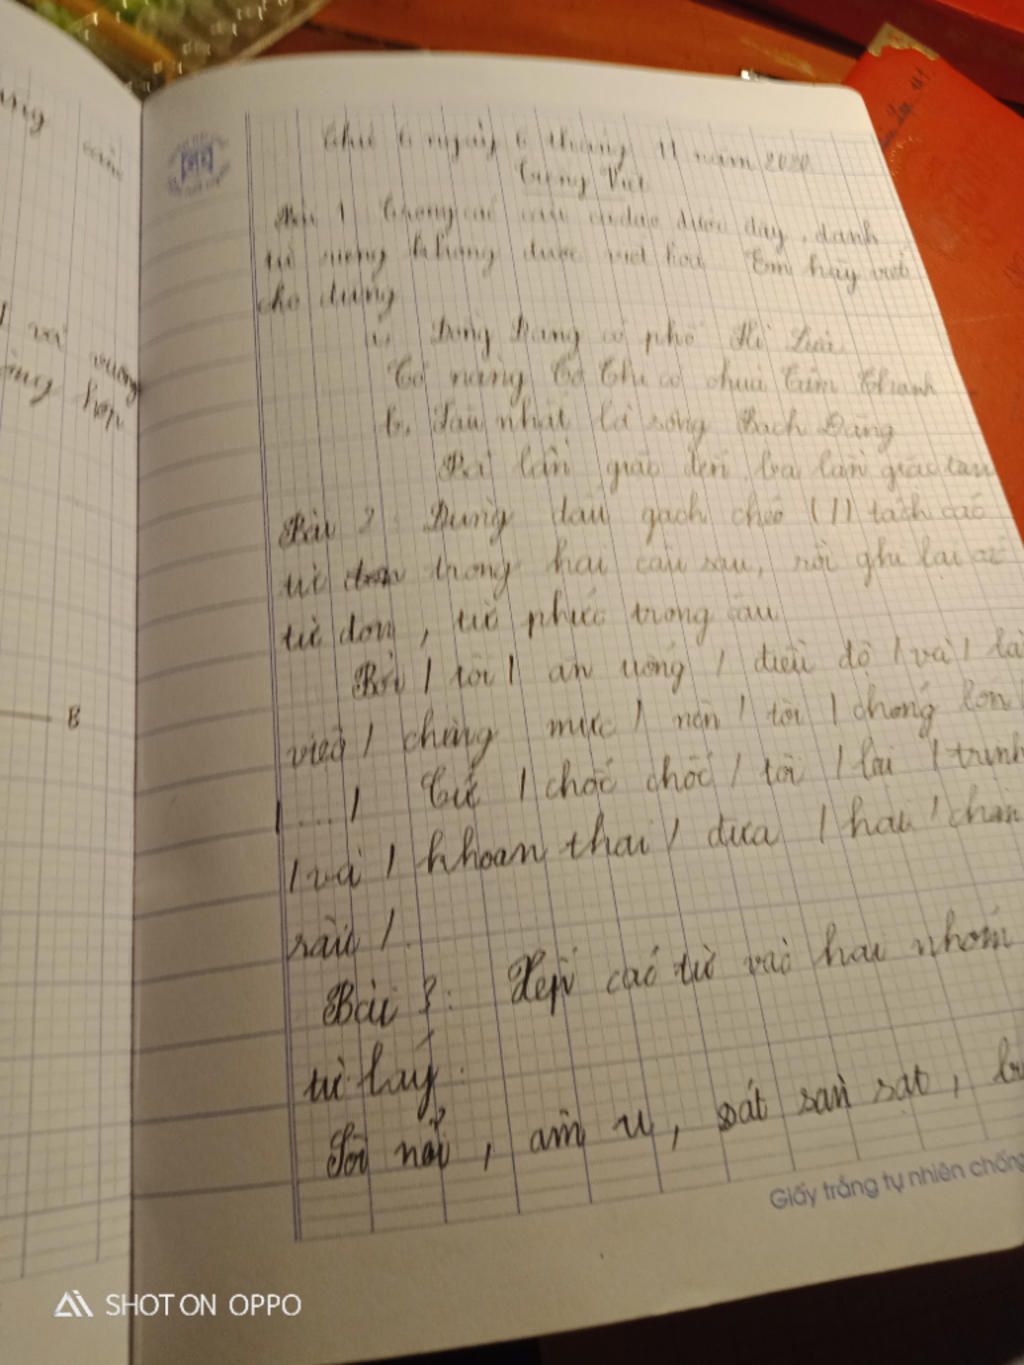 Thứ 6 ngày 6 tháng 11 năm 2020
Tiếng Việt
Bài 1 Trong các câu ca dao dưới đây, danh
từ riêng không được viết hoa Em hãy viết
cho đúng
a, Đồng Đăng có phố Kì Lừa
Có nàng Tô Thị có chùa Tam Thanh
b, Sâu nhất là sông Bạch Đằng
Ba lần giặc đến ba lần giặc tan
Bài 2: Dùng dấu gạch chéo (/) tách các
từ trong hai câu sau, rồi ghi lại các
từ đơn, từ phức trong câu
Bởi / tôi / ăn uống / điều độ / và / là
việc / chừng mực / nên / tôi / chóng lớn /
/ ... / Cứ / chốc chốc / tôi / lại / trịnh
/ và / khoan thai / đưa / hai / chân
râu /.
Bài 3: Xếp các từ vào hai nhóm
từ láy.
Sôi nổi, ầm ừ, sát sàn sạt,
Giấy trắng tự nhiên chống
ung
và vuông
ông hợp
B
SHOT ON OPPO